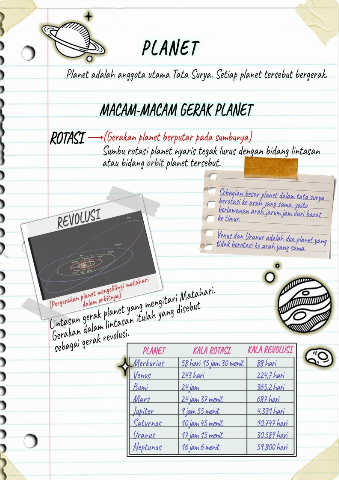 PLANET
Planet adalah anggota utama Tata Surya. Setiap planet tersebut bergerak.
MACAM-MACAM GERAK PLANET
ROTASI → (Gerakan planet berputar pada sumbunya)
Sumbu rotasi planet nyaris tegak lurus dengan bidang lintasan
atau bidang orbit planet tersebut.
Sebagian besar planet dalam tata surya
berotasi ke arah yang sama, yaitu
berlawanan arah jarum jam dari barat
ke timur.
Venus dan Uranus adalah dua planet yang
tidak berotasi ke arah yang sama.
REVOLUSI
(Pergerakan planet mengelilingi matahari
dalam orbitnya)
Lintasan gerak planet yang mengitari Matahari.
Gerakan dalam lintasan itulah yang disebut
sebagai gerak revolusi.
PLANET KALA ROTASI KALA REVOLUSI
Merkurius 58 hari 15 jam 30 menit 88 hari
Venus 243 hari 224,7 hari
Bumi 24 jam 365,2 hari
Mars 24 jam 37 menit 687 hari
Jupiter 9 jam 55 menit 4.331 hari
Saturnus 10 jam 45 menit 10.747 hari
Uranus 17 jam 15 menit 30.589 hari
Neptunus 16 jam 6 menit 59.800 hari